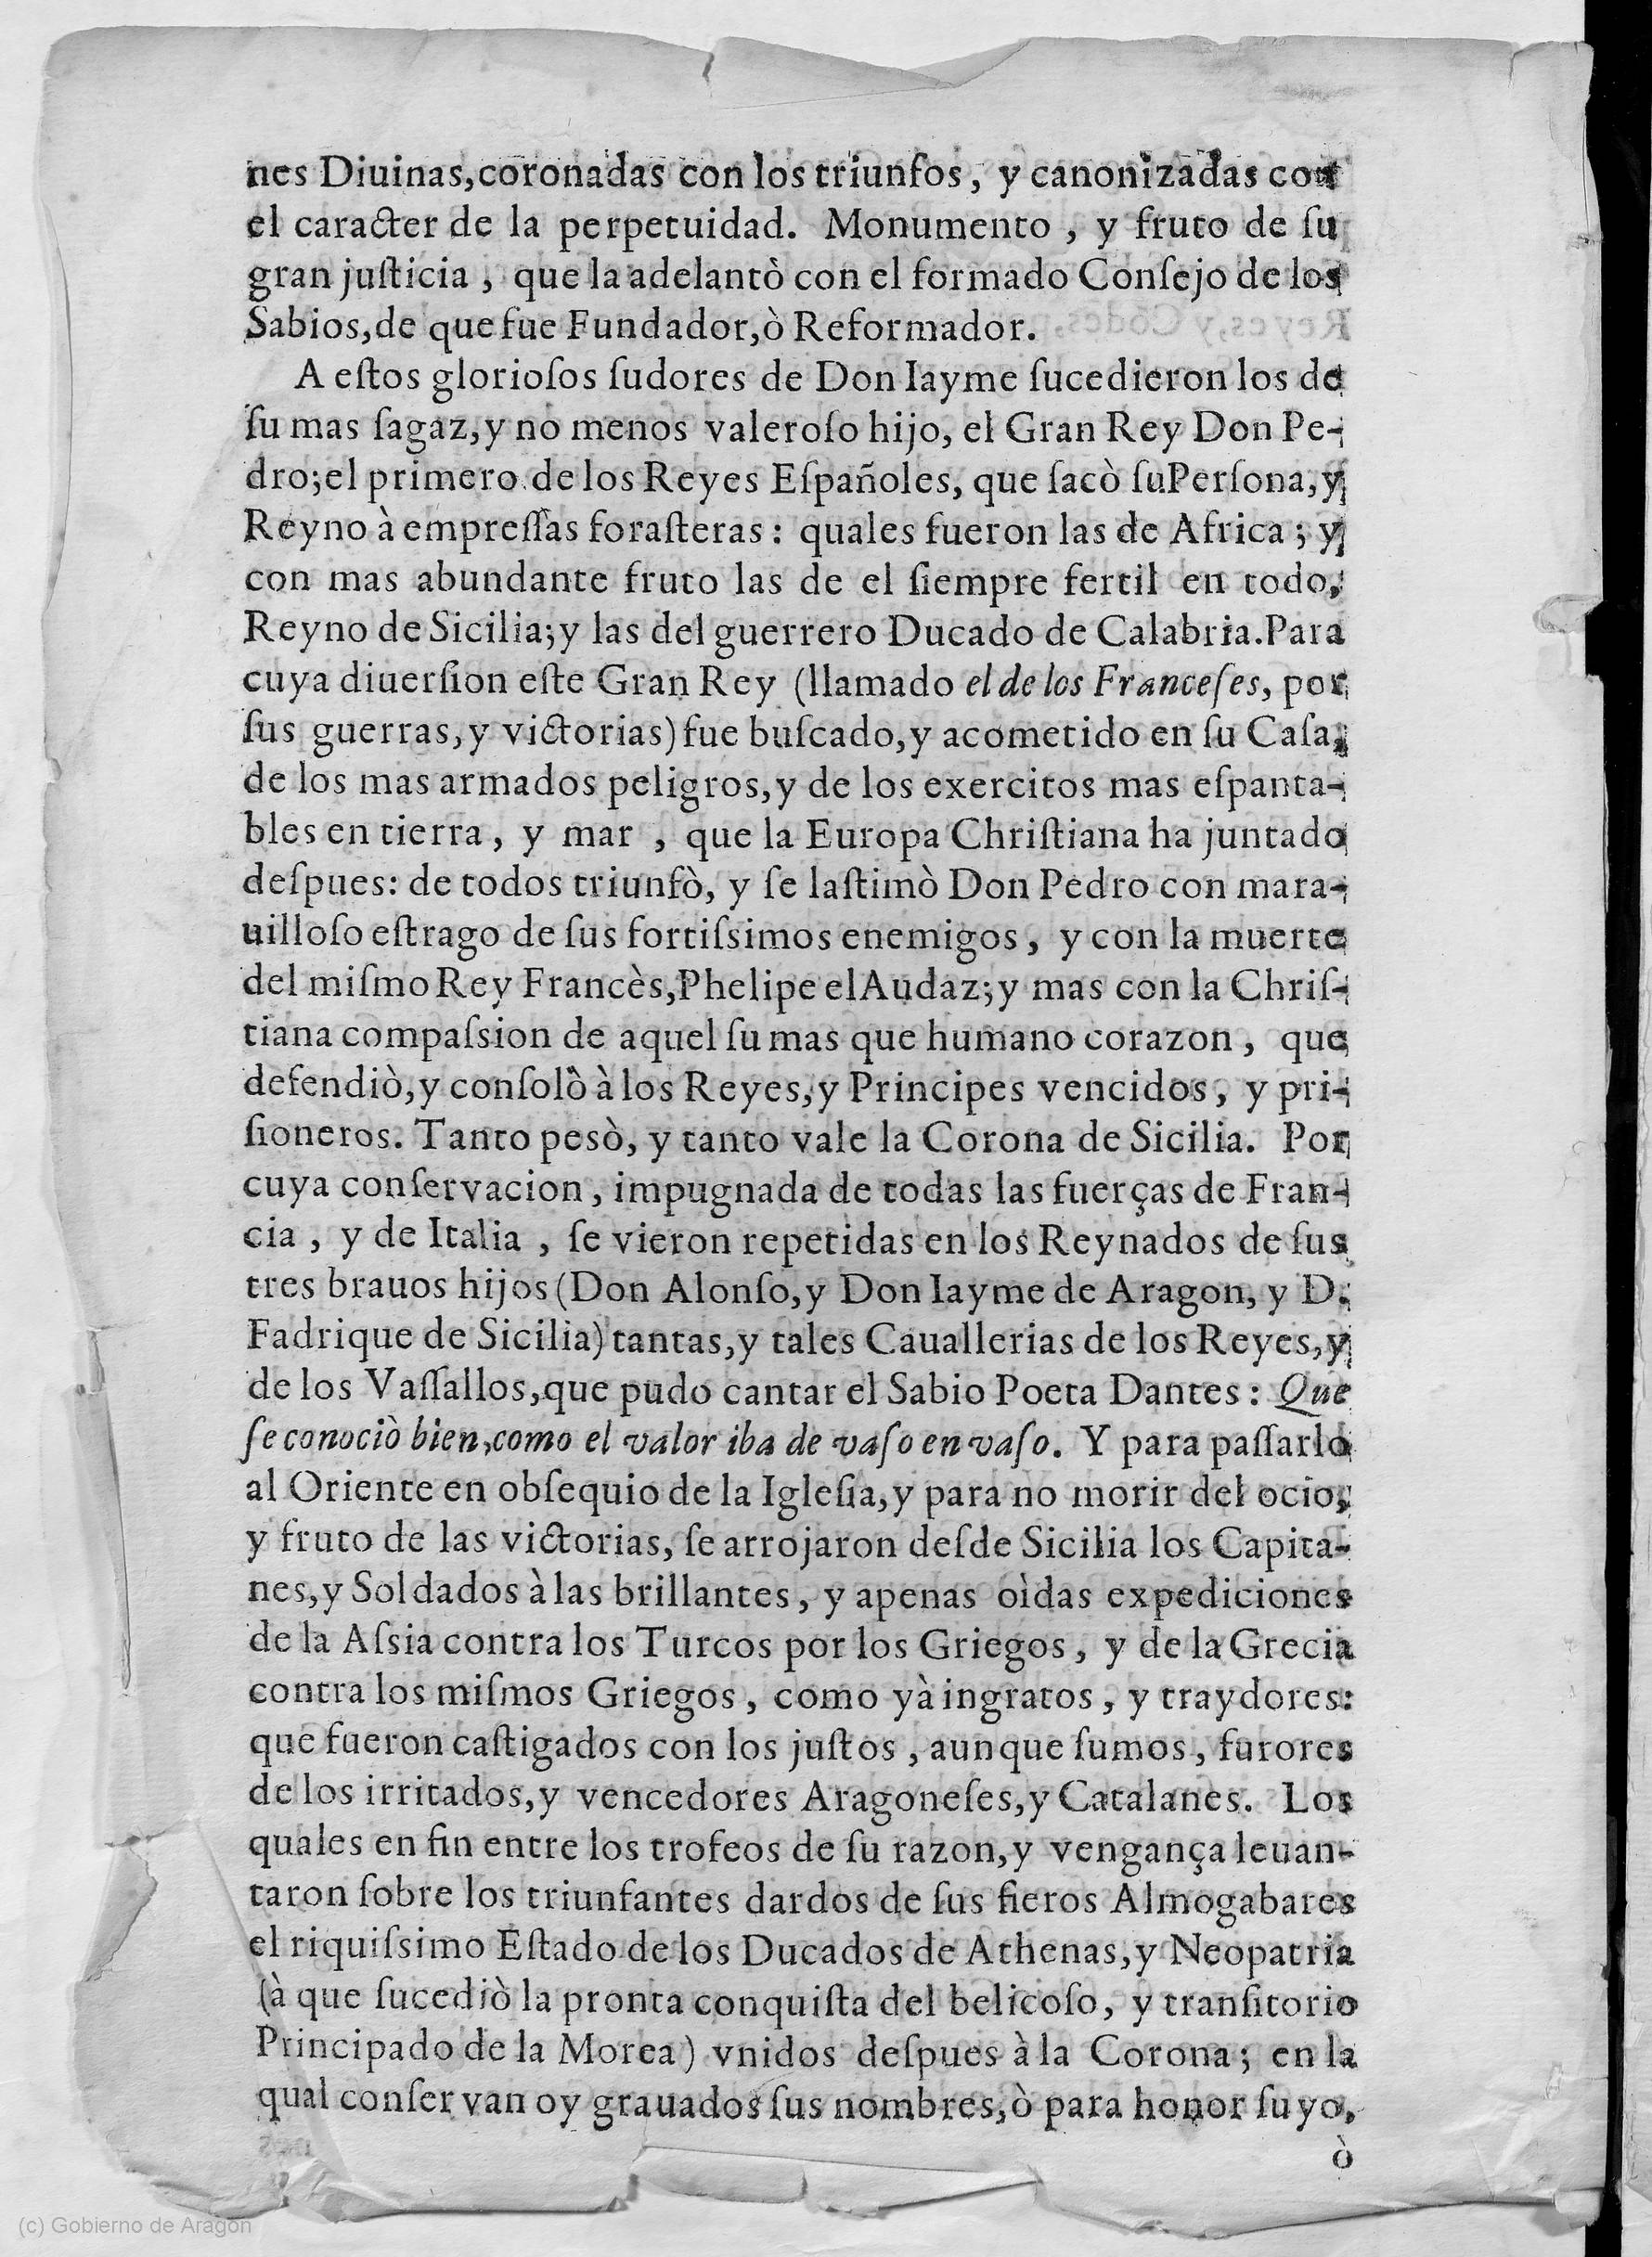 nes Diuinas,coronadas con los triunfos, y canonizadas con
el caracter de la perpetuidad. Monumento , y fruto de ſu
gran juſticia , que la adelantò con el formado Conſejo de los
Sabios,de que fue Fundador,ò Reformador.
A eſtos glorioſos ſudores de Don Iayme ſucedieron los de
ſu mas ſagaz,y no menos valeroſo hijo, el Gran Rey Don Pe-
dro;el primero de los Reyes Eſpañoles, que ſacò ſuPerſona,y
Reyno à empreſſas foraſteras: quales fueron las de Africa ; y
con mas abundante fruto las de el ſiempre fertil en todo,
Reyno de Sicilia;y las del guerrero Ducado de Calabria.Para
cuya diuerſion eſte Gran Rey (llamado el de los Franceſes, por
ſus guerras,y victorias) fue buſcado,y acometido en ſu Caſa,
de los mas armados peligros,y de los exercitos mas eſpanta-
bles en tierra , y mar , que la Europa Chriſtiana ha juntado
deſpues: de todos triunfò, y ſe laſtimò Don Pedro con mara-
uilloſo eſtrago de ſus fortiſsimos enemigos , y con la muerte
del miſmo Rey Francès,Phelipe el Audaz;y mas con la Chriſ-
tiana compaſsion de aquel ſu mas que humano corazon , que
defendiò,y conſolò à los Reyes,y Principes vencidos, y pri-
ſioneros. Tanto pesò, y tanto vale la Corona de Sicilia. Por
cuya conſervacion , impugnada de todas las fuerças de Fran-
cia , y de Italia , ſe vieron repetidas en los Reynados de ſus
tres brauos hijos (Don Alonſo,y Don Iayme de Aragon, y D.
Fadrique de Sicilia) tantas,y tales Cauallerias de los Reyes,y
de los Vaſſallos,que pudo cantar el Sabio Poeta Dantes : Que
ſe conociò bien,como el valor iba de vaſo en vaſo. Y para paſſarlo
al Oriente en obſequio de la Igleſia,y para no morir del ocio,
y fruto de las victorias, ſe arrojaron deſde Sicilia los Capita-
nes,y Soldados à las brillantes , y apenas oìdas expediciones
de la Aſsia contra los Turcos por los Griegos , y de la Grecia
contra los miſmos Griegos , como yà ingratos , y traydores:
que fueron caſtigados con los juſtos , aunque ſumos , furores
de los irritados,y vencedores Aragoneſes,y Catalanes. Los
quales en fin entre los trofeos de ſu razon,y vengança leuan-
taron ſobre los triunfantes dardos de ſus fieros Almogabares
el riquiſsimo Eſtado de los Ducados de Athenas,y Neopatria
(à que ſucediò la pronta conquiſta del belicoſo, y tranſitorio
Principado de la Morea) vnidos deſpues à la Corona; en la
qual conſervan oy grauados ſus nombres,ò para honor ſuyo,
ò
(c) Gobierno de Aragón